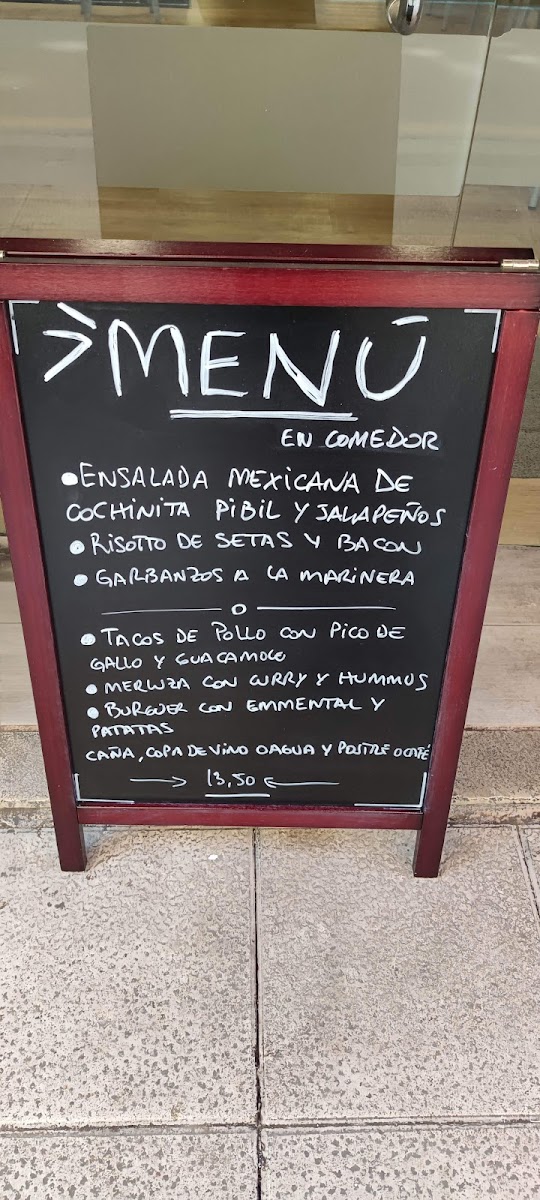 >MENÚ
EN COMEDOR
• ENSALADA MEXICANA DE
COCHINITA PIBIL Y JALAPEÑOS
• RISOTTO DE SETAS Y BACON
• GARBANZOS A LA MARINERA
• TACOS DE POLLO CON PICO DE
GALLO Y GUACAMOLE
• MERLUZA CON CURRY Y HUMMUS
• BURGUER CON EMMENTAL Y
PATATAS
CAÑA, COPA DE VINO O AGUA Y POSTRE O CAFÉ
→ 13,50 ←